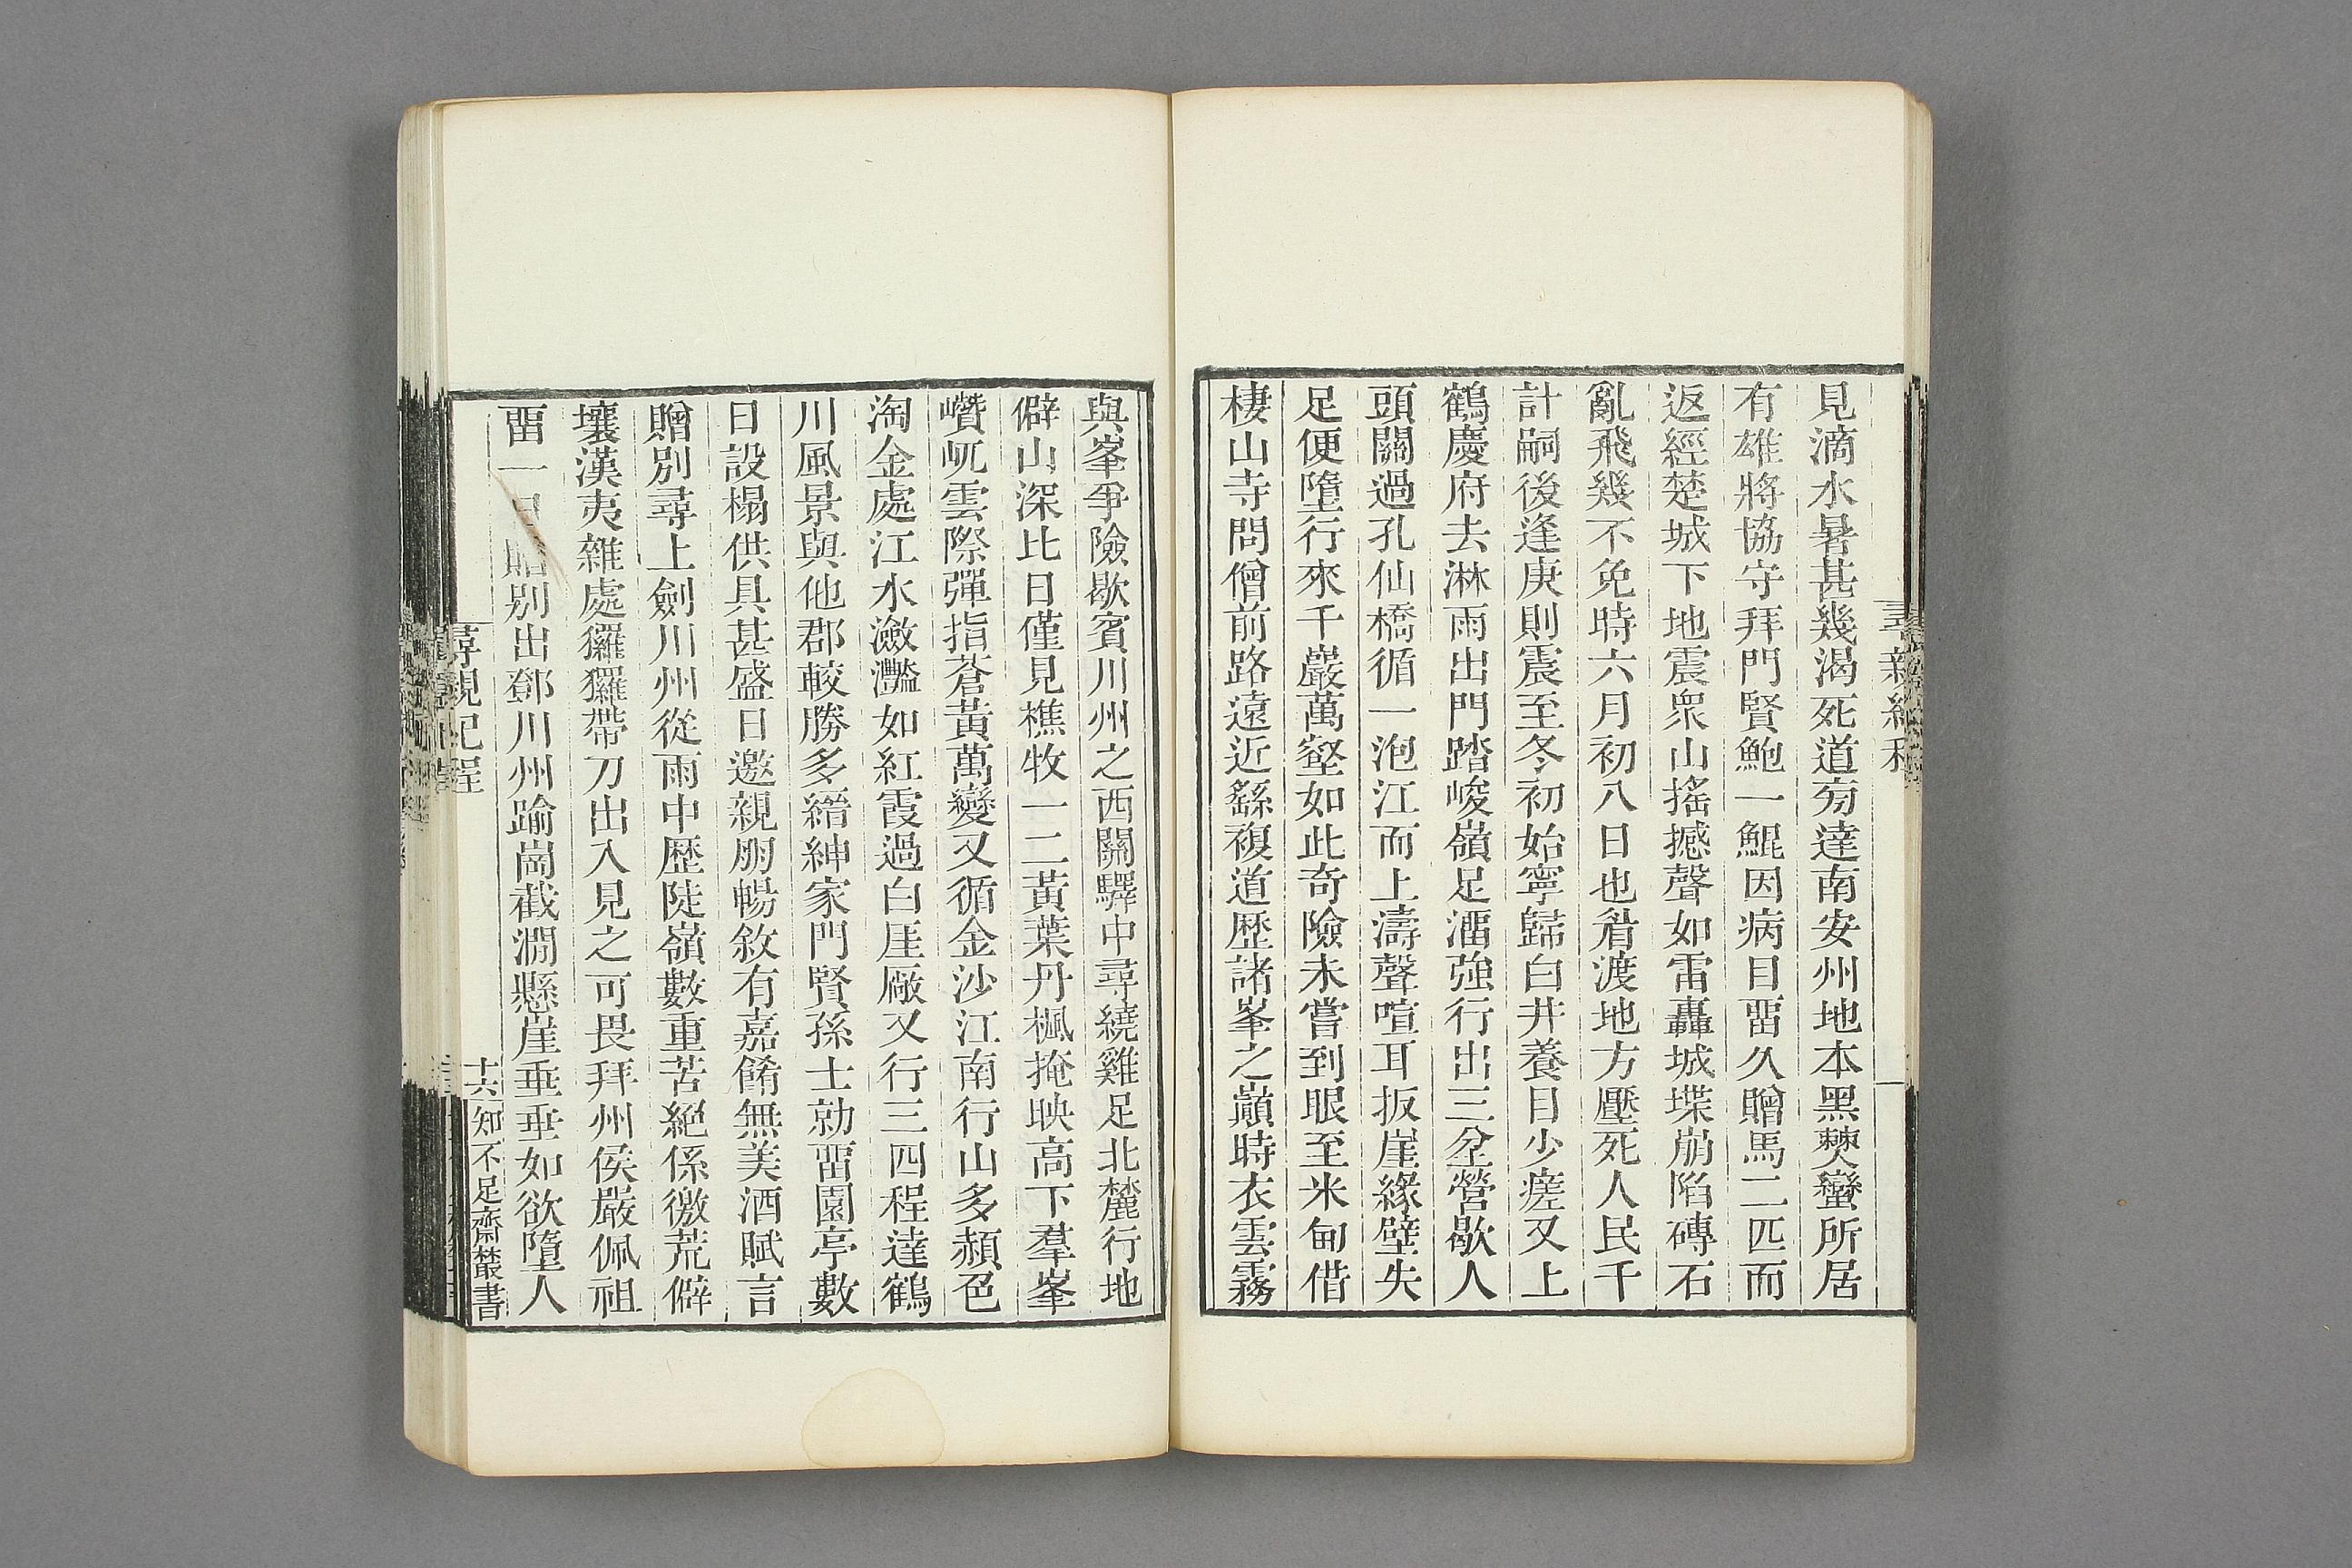 見滴水暑甚幾渴死道旁達南安州地本黑僰蠻所居
有雄將協守拜門賢鮑一鯤因病目畱久贈馬二匹而
返經楚城下地震衆山搖撼聲如雷轟城堞崩陷磚石
亂飛幾不免時六月初八日也省渡地方壓死人民千
計嗣後逢庚則震至冬初始寧歸白井養目少瘥又上
鶴慶府去淋雨出門踏峻嶺足濡強行出三岔營歇人
頭關過孔仙橋循一泡江而上濤聲喧耳扳崖緣壁失
足便墮行來千巖萬壑如此奇險未嘗到眼至米甸借
棲山寺問僧前路遠近繇複道歷諸峯之巔時衣雲霧
與峯爭險歇賓川州之西關驛中尋繞雞足北麓行地
僻山深比日僅見樵牧一二黃葉丹楓掩映高下羣峯
巑岏雲際彈指蒼黃萬變又循金沙江南行山多赬色
淘金處江水瀲灩如紅霞過白厓廠又行三四程達鶴
川風景與他郡較勝多縉紳家門賢孫士勍畱園亭數
日設榻供具甚盛日邀親朋暢敘有嘉餚無美酒賦言
贈別尋上劍川州從雨中歷陡嶺數重苦絕係徼荒僻
壤漢夷雜處玀玀帶刀出入見之可畏拜州侯嚴佩祖
畱一日贈別出鄧川州踰崗截澗懸崖垂垂如欲墮人
尋親紀程
十六
知不足齋叢書